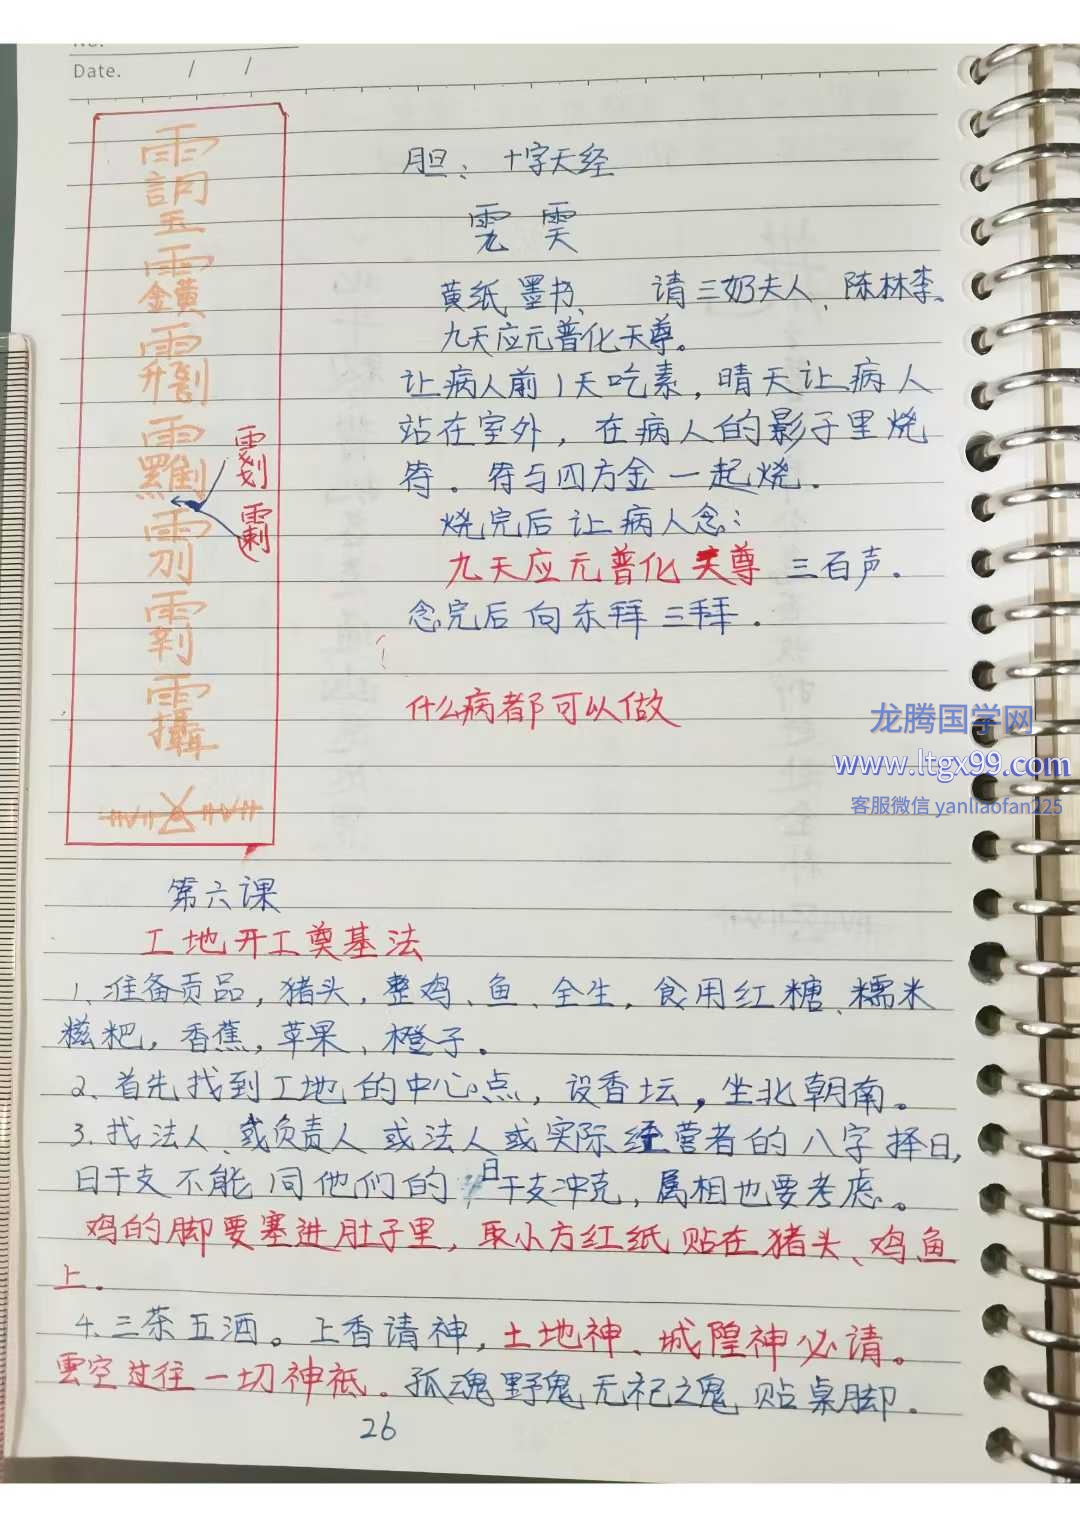 Date. / /
胆：十字天经
黄纸墨书、 请三奶夫人、陈林李、
九天应元普化天尊。
让病人前1天吃素，晴天让病人
站在室外，在病人的影子里烧
符．符与四方金一起烧．
烧完后让病人念：
九天应元普化天尊 三百声．
念完后向东拜三拜．
什么病都可以做
龙腾国学网
www.ltgx99.com
客服微信 yanliaofan225
第六课
工地开工奠基法
1、准备贡品，猪头，整鸡、鱼、全生，食用红糖、糯米
糍粑，香蕉，苹果、橙子。
2、首先找到工地的中心点，设香坛，坐北朝南。
3、找法人、或负责人或法人或实际经营者的八字择日，
日干支不能同他们的日干支冲克，属相也要考虑。
鸡的脚要塞进肚子里，取小方红纸贴在猪头、鸡鱼
上．
4、三茶五酒。上香请神，土地神、城隍神必请。
雲空过往一切神祗．孤魂野鬼无祀之鬼贴桌脚．
26